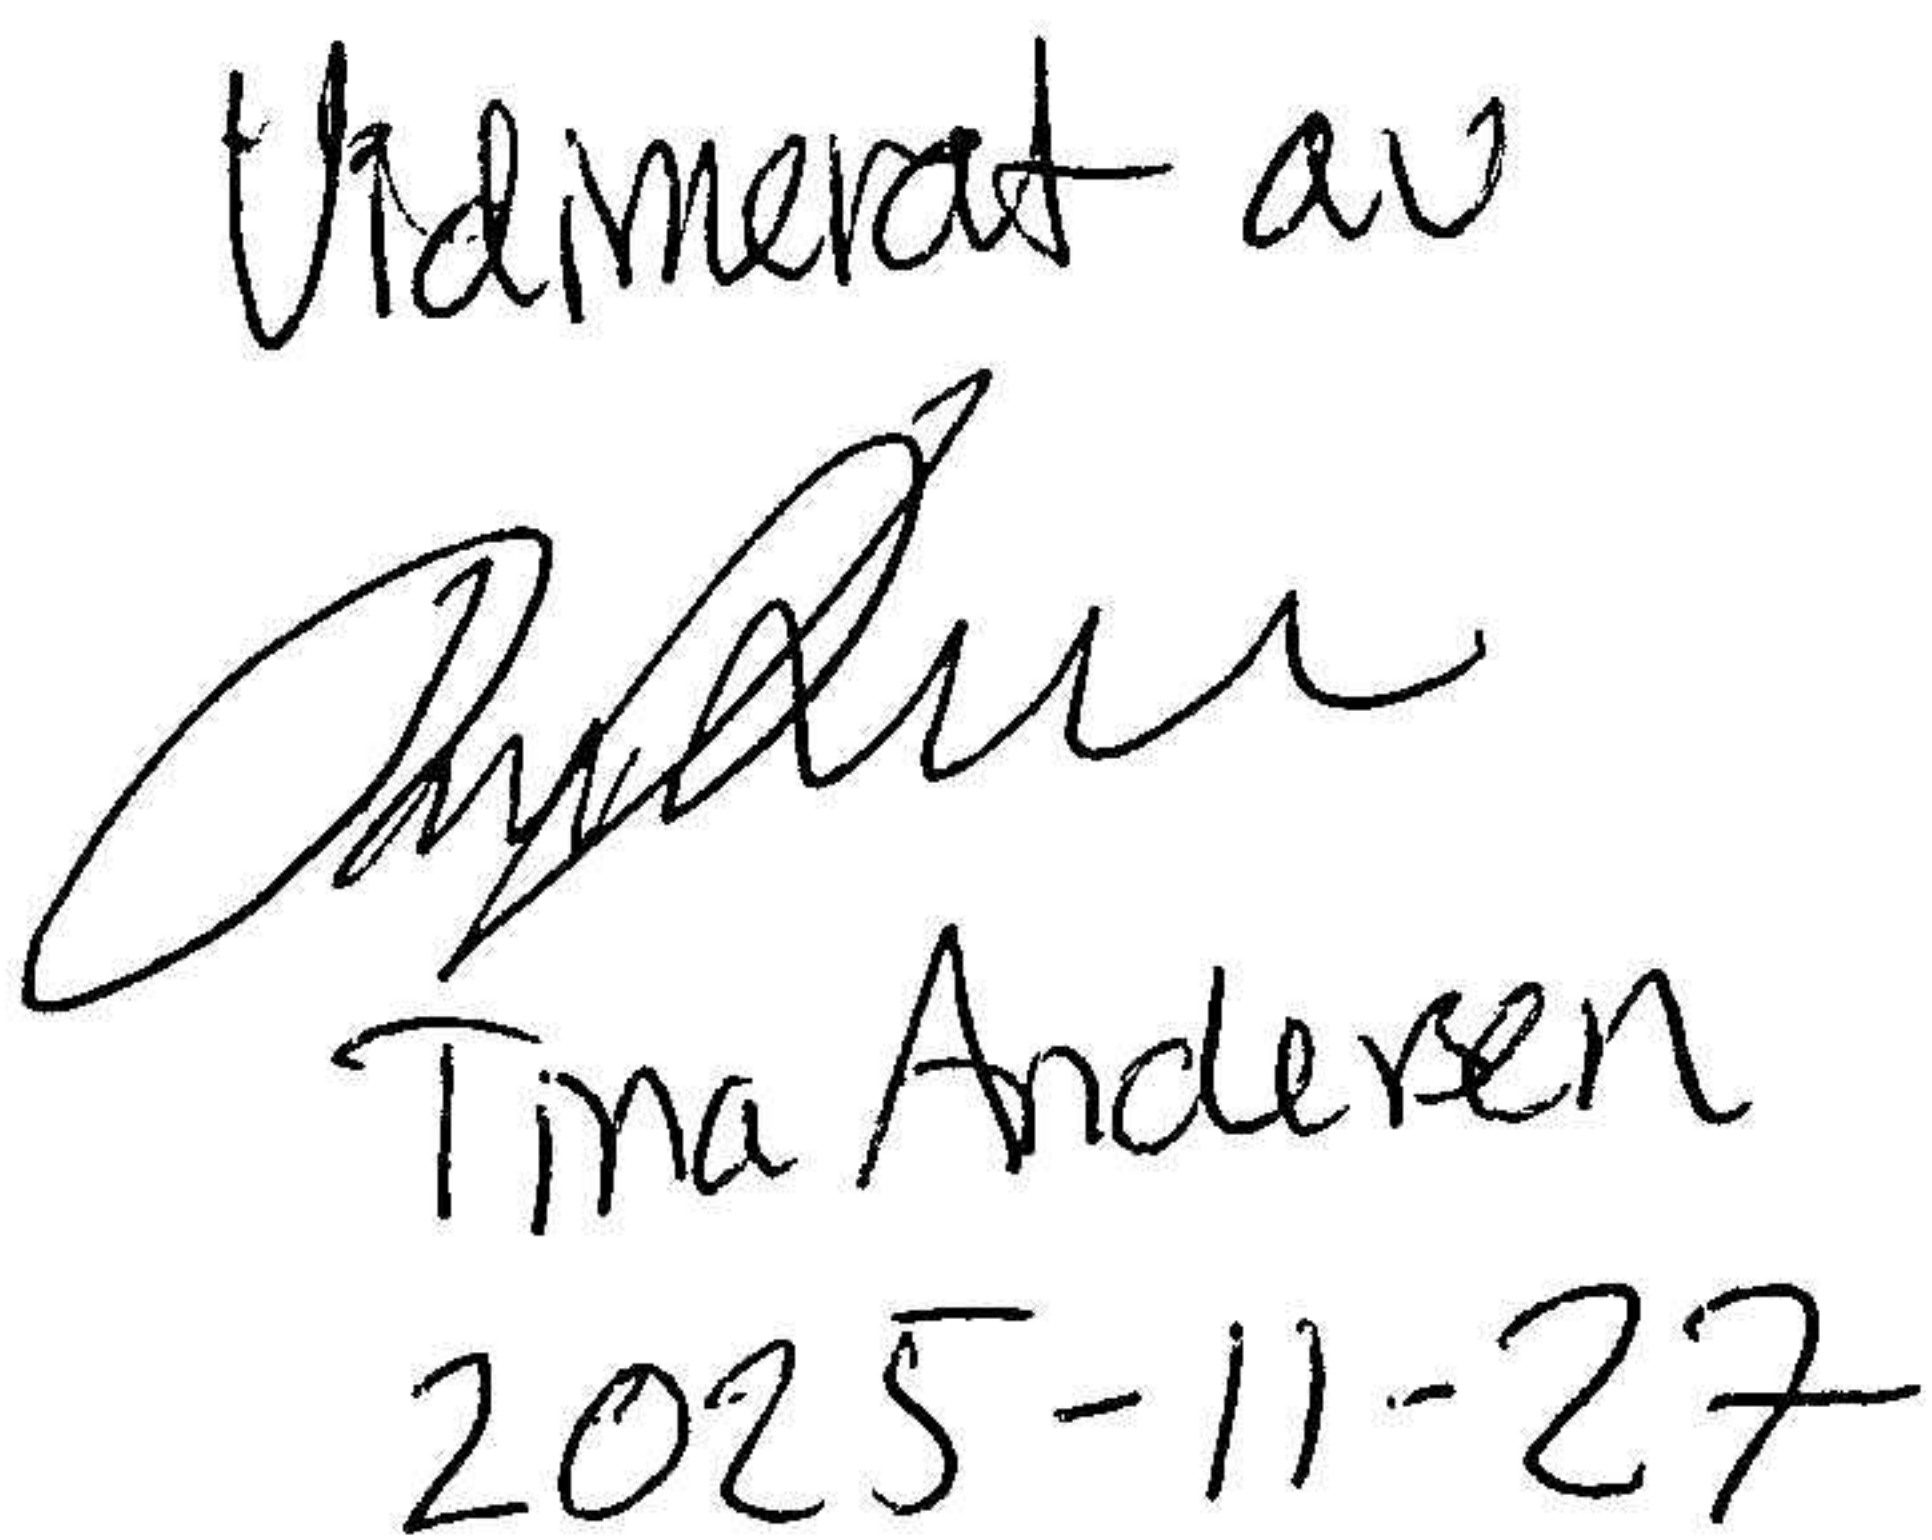 Vidimerat av
Tina Andersen
2025-11-27